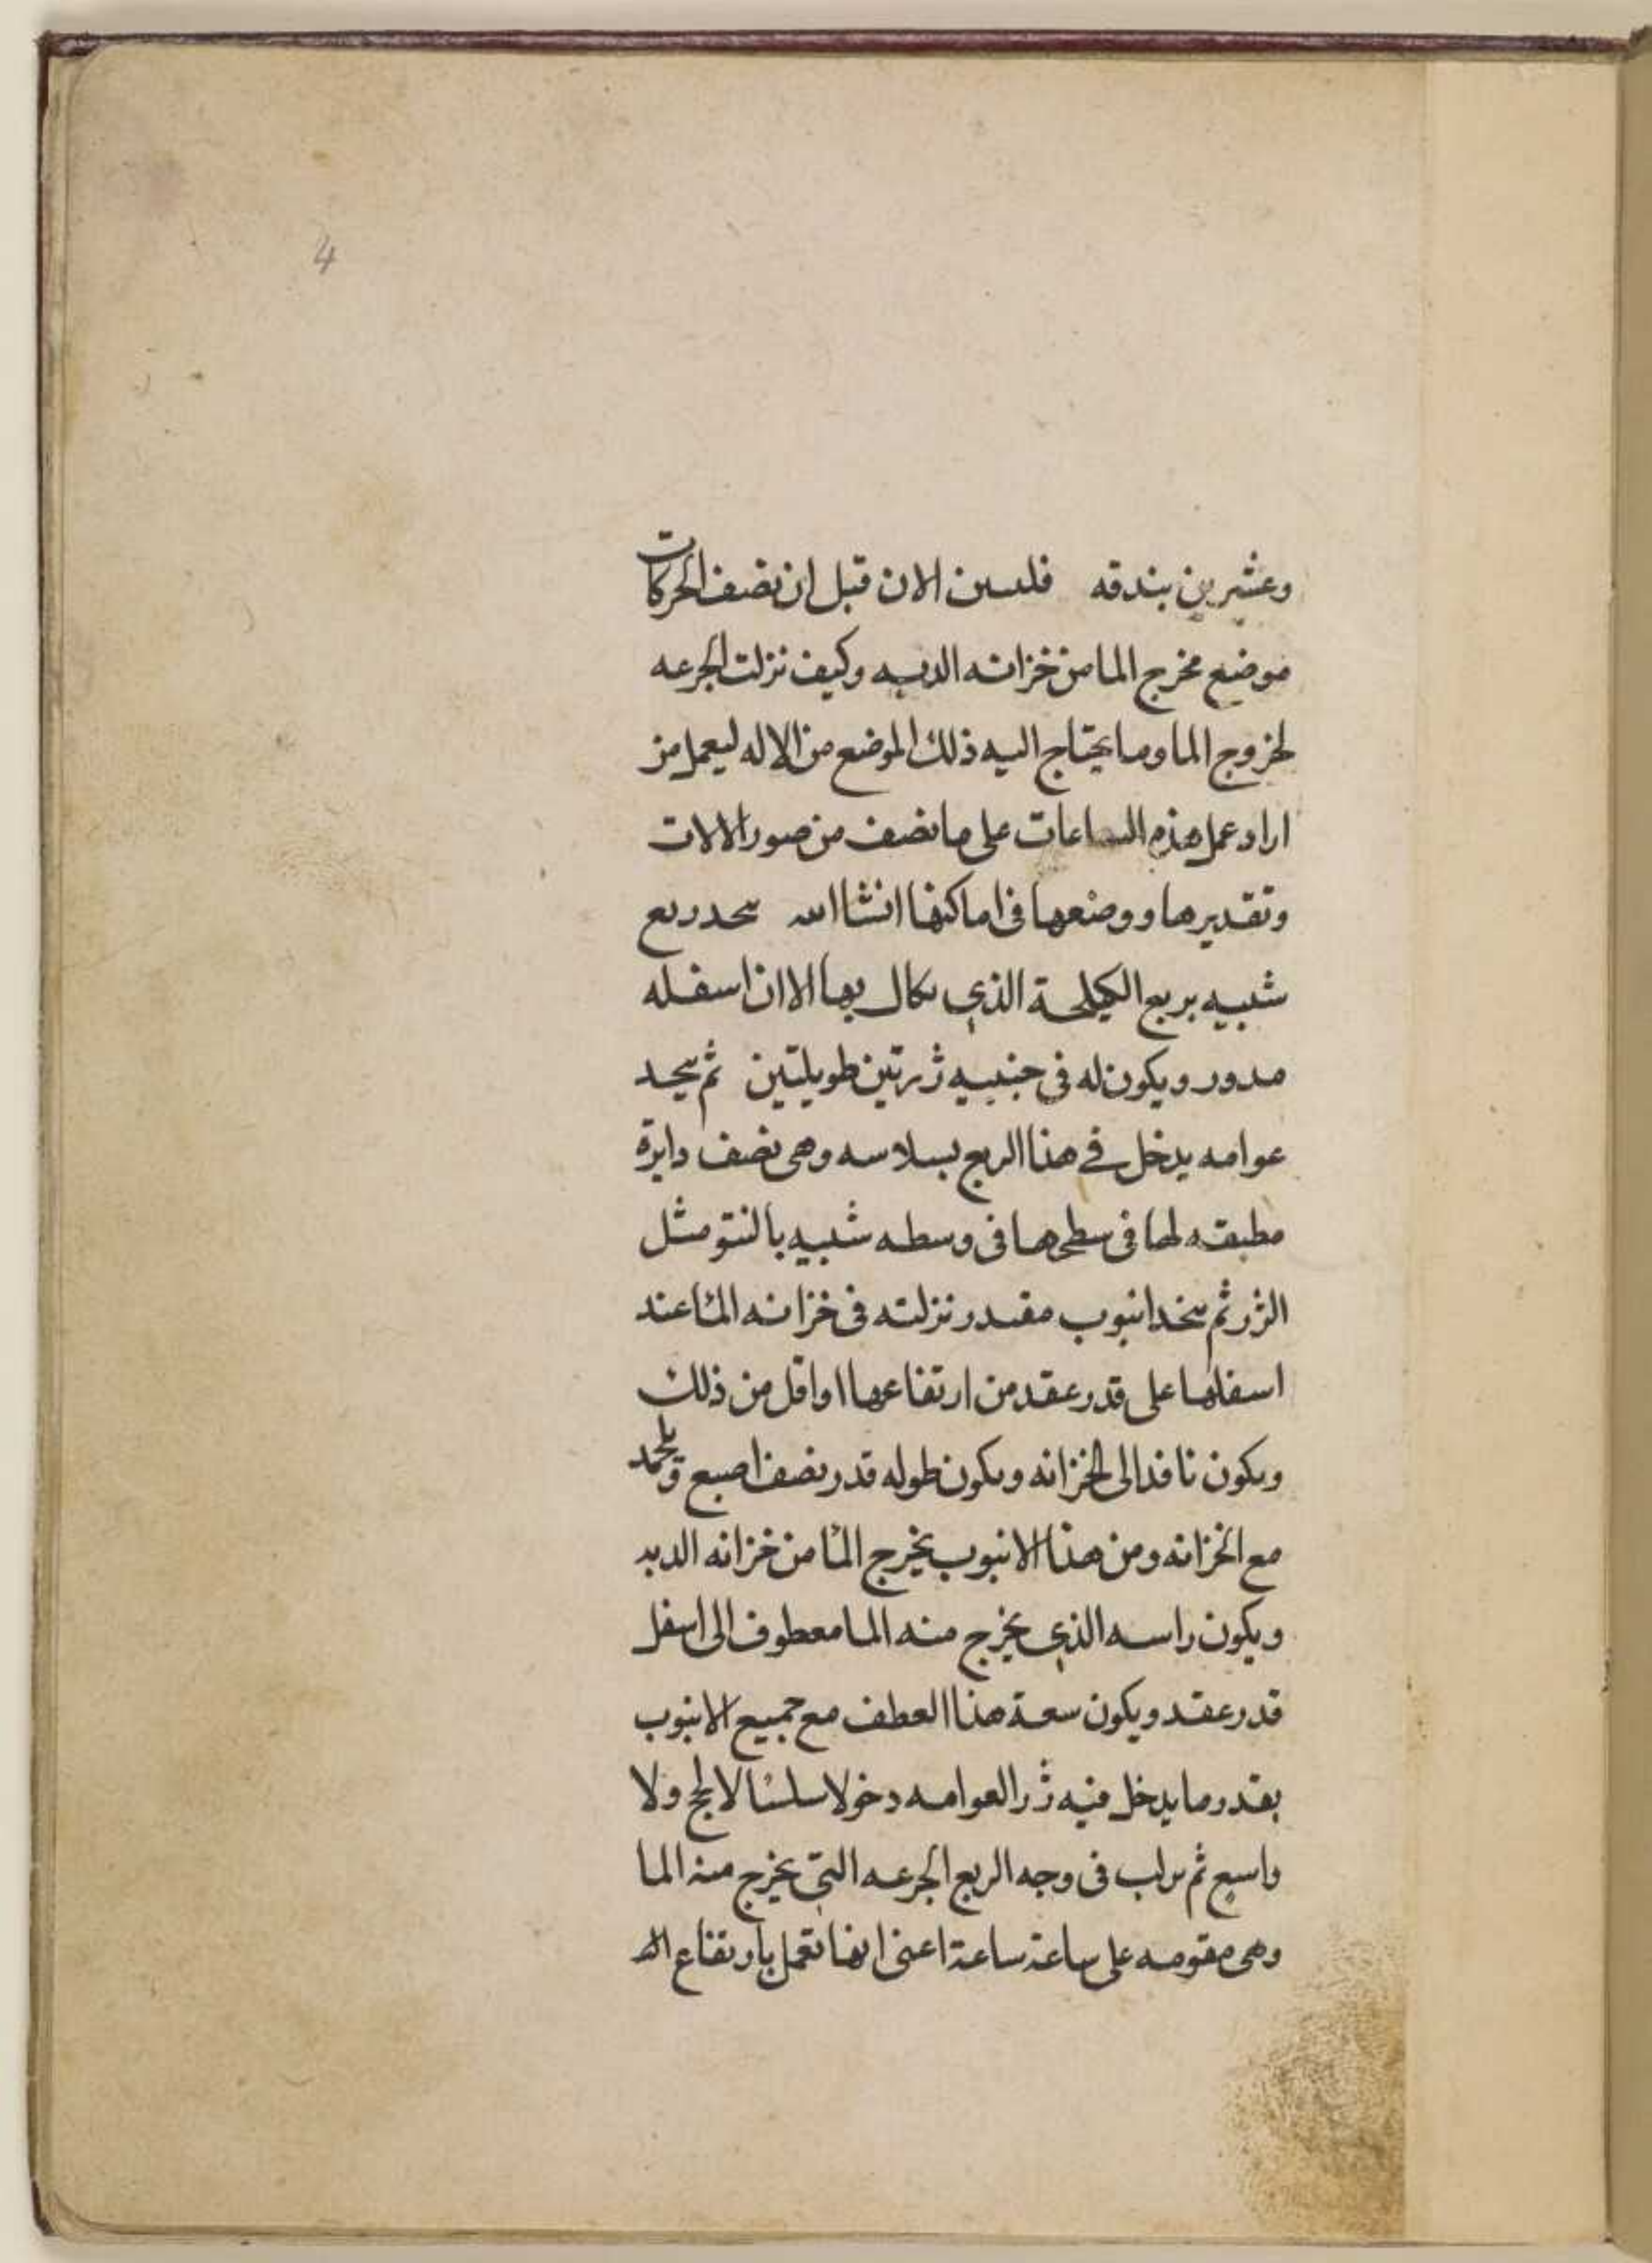 4
وعشرين بندقه فلنبين الان قبل ان نصف الحركات
موضع مخرج الما من خزانه الدبه وكيف نزلت الجرعه
لخروج الما وما يحتاج اليه ذلك الموضع من الاله ليعمل من
اراد عمل هذه الساعات على ما نصف من صور الالات
وتقديرها ووضعها في اماكنها انشا الله يتخذ ربع
شبيه بربع الكيلجة الذي يكال بها الا ان اسفله
مدور ويكون له في جنبيه زرتين طويلتين ثم يتخذ
عوامه يدخل في هذا الربع بسلاسه وهي نصف دايرة
مطبقه لها في سطحها في وسطه شبيه بالنتو مثل
الزر ثم يتخذ انبوب مقدر نزلته في خزانه الما عند
اسفلها على قدر عقد من ارتفاعها او اقل من ذلك
ويكون نافذ الى الخزانه ويكون طوله قدر نصف اصبع ويلحمد
مع الخزانه ومن هذا الانبوب يخرج الما من خزانه الدبه
ويكون راسه الذي يخرج منه الما معطوف الى اسفل
قدر عقد ويكون سعة هذا العطف مع جميع الانبوب
بقدر ما يدخل فيه زر العوامه دخولا سلسا لا لحج ولا
واسع ثم يركب في وجه الربع الجرعه التي يخرج منه الما
وهي مقومه على ساعة ساعة اعني انها تعمل بارتفاع